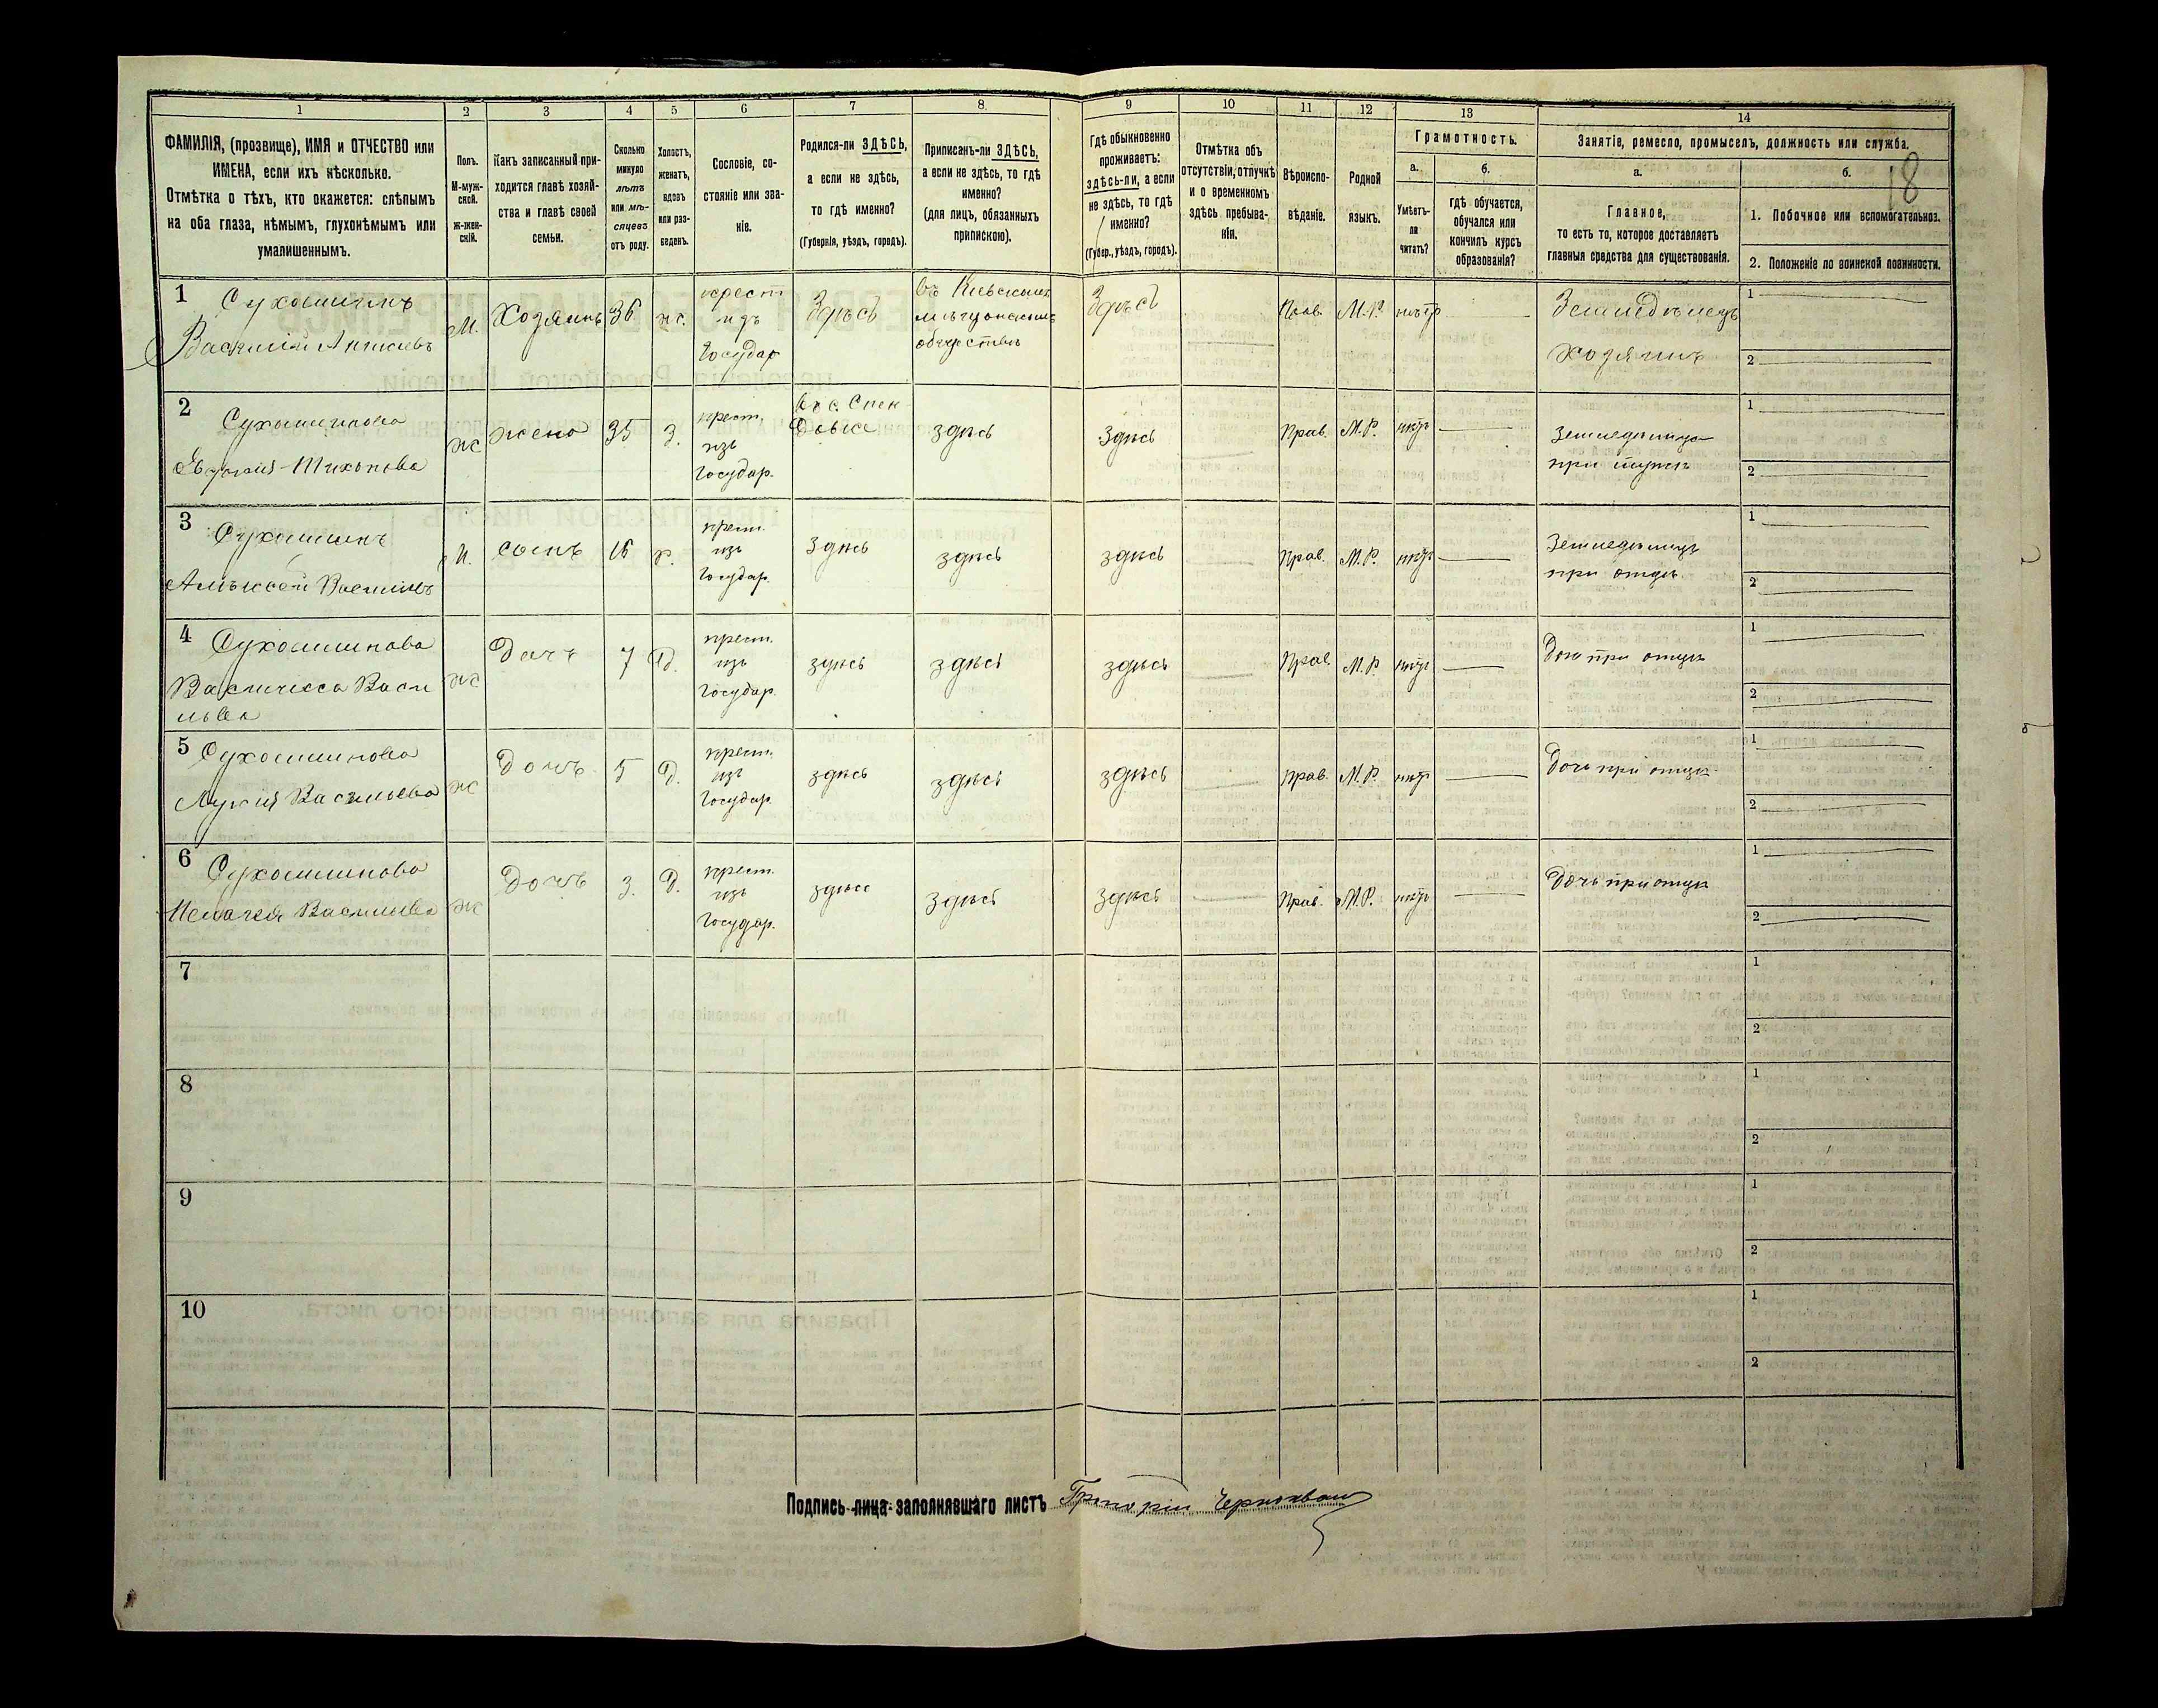 1
2
3
4
5
6
7
8
9
10
11
12
13
14
ФАМИЛІЯ, (прозвище), ИМЯ и ОТЧЕСТВО или
ИМЕНА, если ихъ нѣсколько.
Отмѣтка о тѣхъ, кто окажется: слѣпымъ
на оба глаза, нѣмымъ, глухонѣмымъ или
умалишеннымъ.
Полъ.
М-муж-
ской.
ж-жен-
скій.
Какъ записанный при-
ходится главѣ хозяй-
ства и главѣ своей
семьи.
Сколько
минуло
лѣтъ
или мѣ-
сяцевъ
отъ роду.
Холостъ,
женатъ,
вдовъ
или раз-
веденъ.
Сословіе, со-
стояніе или зва-
ніе.
Родился-ли ЗДѢСЬ,
а если не здѣсь,
то гдѣ именно?
(Губернія, уѣздъ, городъ).
Приписанъ-ли ЗДѢСЬ,
а если не здѣсь, то гдѣ
именно?
(для лицъ, обязанныхъ
припискою).
Гдѣ обыкновенно
проживаетъ:
здѣсь-ли, а если
не здѣсь, то гдѣ
именно?
(Губер., уѣздъ, городъ).
Отмѣтка объ
отсутствіи, отлучкѣ
и о временномъ
здѣсь пребыва-
ніи.
Вѣроиспо-
вѣданіе.
Родной
языкъ.
Грамотность.
а.
Умѣетъ-
ли
читать?
б.
гдѣ обучается,
обучался или
кончилъ курсъ
образованія?
Занятіе, ремесло, промыселъ, должность или служба.
а.
Главное,
то есть то, которое доставляетъ
главныя средства для существованія.
б.
18
1. Побочное или вспомогательное.
2. Положеніе по воинской повинности.
1
Василій
М.
Хозяинъ
36
ж.
крест
изъ
Государ
Здѣсь
въ
обществѣ
Здѣсь
Прав.
М.Р.
нѣтъ
Земледѣлецъ
хозяинъ
1
2
2
Тихонова
ж
жена
35
З.
крест.
изъ
Государ.
здѣсь
здѣсь
Прав.
М.Р.
нѣтъ
при мужѣ
1
2
3
Алѣксѣй
М.
сынъ
16
х.
крест.
изъ
Государ.
здѣсь
здѣсь
здѣсь
Прав.
М.Р.
нѣтъ
при отцѣ
1
2
4
ж
Дочъ
7
Д.
крест.
изъ
Государ.
здѣсь
здѣсь
здѣсь
Прав.
М.Р.
нѣтъ
Дочь при отцѣ
1
2
5
Васильева
ж
Дочъ
5
Д.
крест.
изъ
Государ.
здѣсь
здѣсь
здѣсь
Прав.
М.Р.
нѣтъ
Дочь при отцѣ
1
2
6
ж
Дочъ
3.
Д.
крест.
изъ
Государ.
здѣсь
здѣсь
здѣсь
Прав.
М.Р.
нѣтъ
Дочь при отцѣ
1
2
7
1
2
8
1
2
9
1
2
10
1
2
Подпись лица заполнявшаго листъ